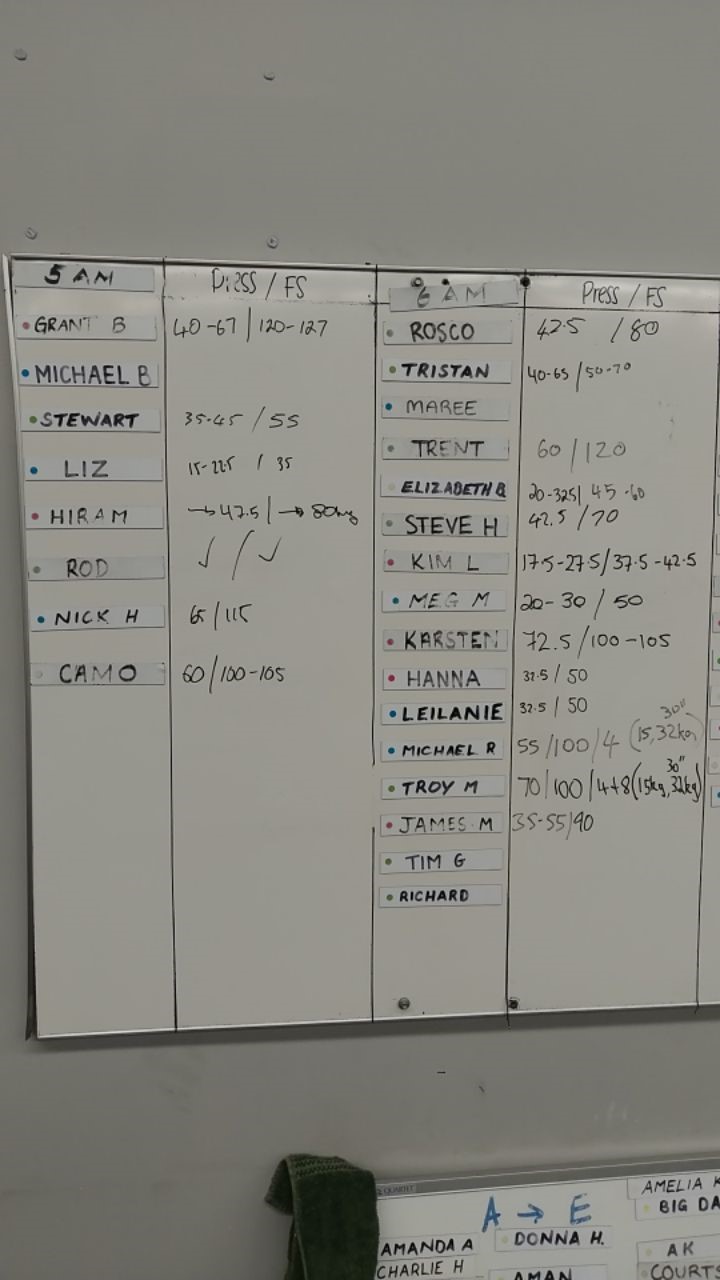 5 AM Press / FS
GRANT B 40-67 | 120-127
MICHAEL B
STEWART 35-45 / 55
LIZ 15-22.5 / 35
HIRAM →47.5 | → 80kg
ROD ✓ / ✓
NICK H 65 / 115
CAMO 60/100-105
6 AM Press / FS
ROSCO 42.5 / 80
TRISTAN 40-65 / 50-70
MAREE
TRENT 60 / 120
ELIZABETH B 20-32.5 | 45-60
STEVE H 42.5 / 70
KIM L 17.5-27.5/37.5-42.5
MEG M 20-30 / 50
KARSTEN 72.5 / 100-105
HANNA 32.5 / 50
LEILANIE 32.5 / 50
MICHAEL R 55/100/4 (15, 32kg) 30"
TROY M 70/100/4+8 (15kg, 32kg) 30"
JAMES M 35-55/90
TIM G
RICHARD
QUARTET
A → E
AMELIA K
BIG DA
AMANDA A
DONNA H.
AK
CHARLIE H
AMAN
COURTS